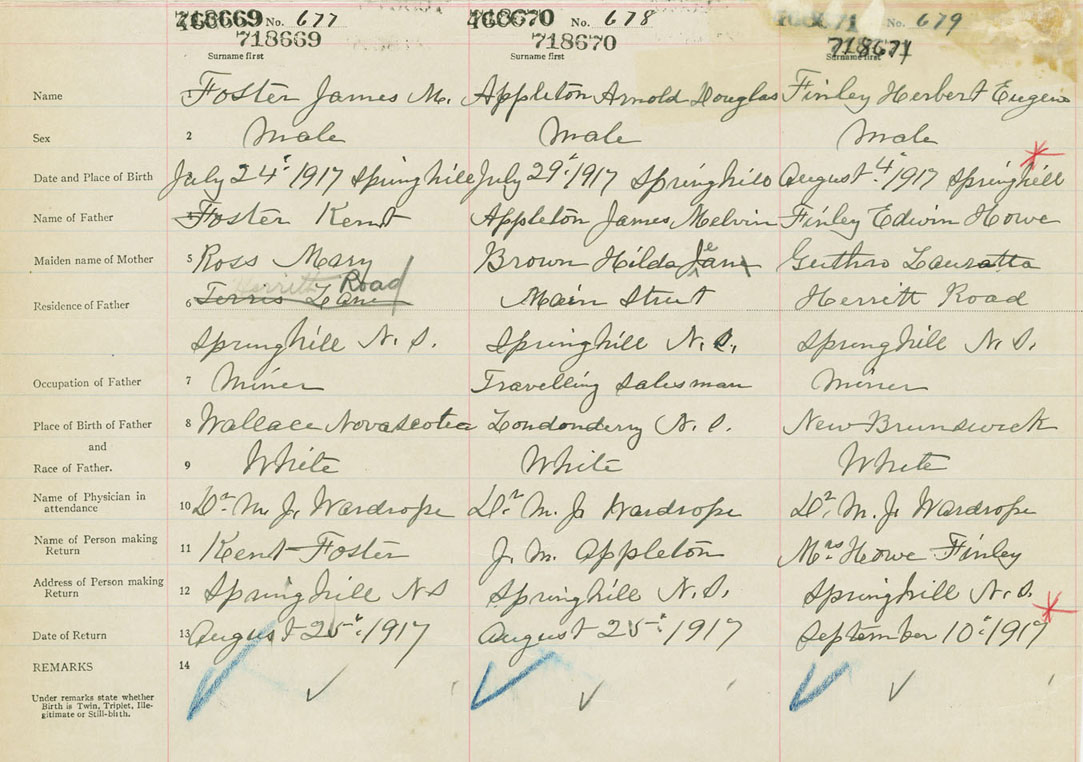 718669 No. 677 718670 No. 678 No. 679
718669 718670 718671
Surname first Surname first Surname first
Name 1 Foster James M. Appleton Arnold Douglas Finley Herbert Eugene
Sex 2 Male Male Male
Date and Place of Birth July 24" 1917 Springhill July 29" 1917 Springhill August 4" 1917 Springhill
Name of Father Foster Kent Appleton James Melvin Finley Edwin Howe
Maiden name of Mother 5 Ross Mary Brown Hilda Jean Guthro Lauratta
Herritt Road
Residence of Father 6 Terris Lane Main Street Herritt Road
Springhill N. S. Springhill N. S. Springhill N. S.
Occupation of Father 7 Miner Travelling Salesman Miner
Place of Birth of Father 8 Wallace Nova Scotia Londonderry N. S. New Brunswick
and
Race of Father. 9 White White White
Name of Physician in
attendance 10 Dr. M. J. Wardrope Dr. M. J. Wardrope Dr. M. J. Wardrope
Name of Person making
Return 11 Kent Foster J. M. Appleton Mrs Howe Finley
Address of Person making
Return 12 Springhill N S Springhill N. S. Springhill N. S.
Date of Return 13 August 25" 1917 August 25" 1917 September 10" 1917
REMARKS 14
Under remarks state whether
Birth is Twin, Triplet, Ille-
gitimate or Still-birth.